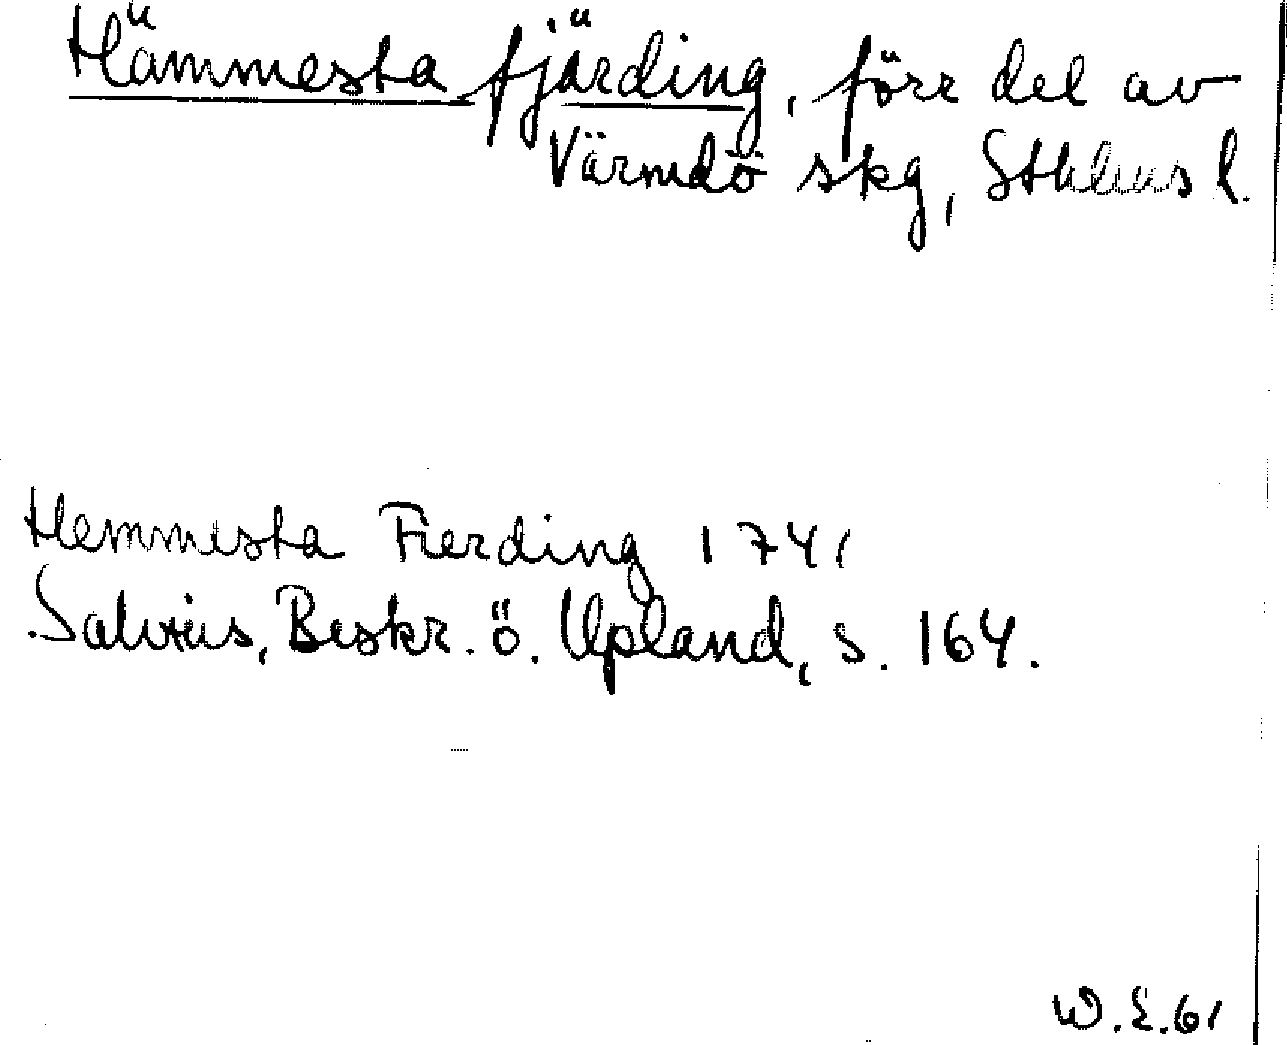 Hämmesta fjärding, förr del av
Värmdö skg, Sthlms l.
Hemmesta Fierding 1741
Salvius, Beskr. ö. Upland, s. 164.
W.E.61